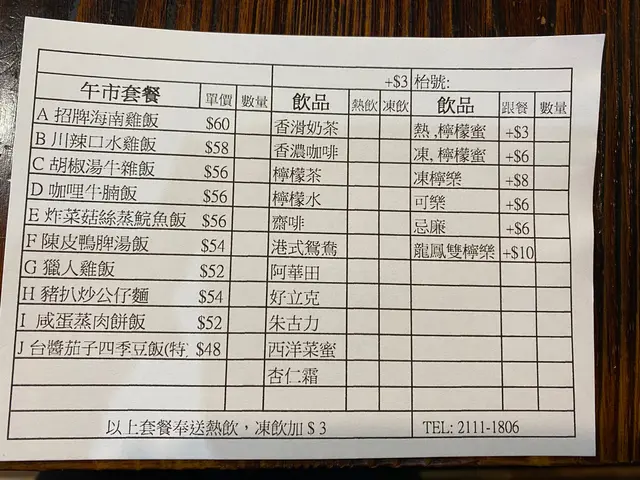 +$3 枱號:
午市套餐 單價 數量 飲品 熱飲 凍飲 飲品 跟餐 數量
A 招牌海南雞飯 $60 香滑奶茶 熱,檸檬蜜 +$3
B 川辣口水雞飯 $58 香濃咖啡 凍,檸檬蜜 +$6
C 胡椒湯牛雜飯 $56 檸檬茶 凍檸樂 +$8
D 咖哩牛腩飯 $56 檸檬水 可樂 +$6
E 炸菜菇絲蒸鯇魚飯 $56 齋啡 忌廉 +$6
F 陳皮鴨脾湯飯 $54 港式鴛鴦 龍鳳雙檸樂 +$10
G 獵人雞飯 $52 阿華田
H 豬扒炒公仔麵 $54 好立克
I 咸蛋蒸肉餅飯 $52 朱古力
J 台醬茄子四季豆飯(特 $48 西洋菜蜜
杏仁霜
以上套餐奉送熱飲，凍飲加 $ 3 TEL: 2111-1806